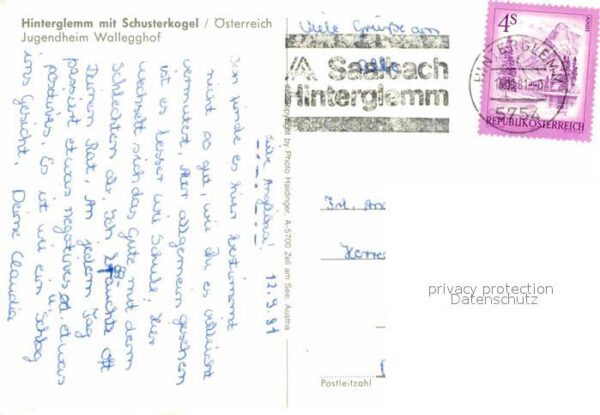 Hinterglemm mit Schusterkogel / Österreich
Jugendheim Wallegghof
Viele Grüße an
alle
Saalbach
Hinterglemm
4S
HINTERGLEMM
5754
REPUBLIK ÖSTERREICH
Liebe Angelika!
12.9.81
Ich finde es hier bestimmt
nicht so gut, wie Du es vielleicht
vermutest, aber allgemein gesehen
ist es besser wie Schule; hier
wechselt sich das Gute mit dem
Schlechten ab. Ich brauchte oft
Deinen Rat. An jedem Tag
passiert etwas negatives od. etwas
positives. Es ist wie ein Schlag
ins Gesicht. Deine Claudia
Copyright by Photo Haidinger, A-5700 Zell am See, Austria
Frl.
Herre
privacy protection
Datenschutz
Postleitzahl